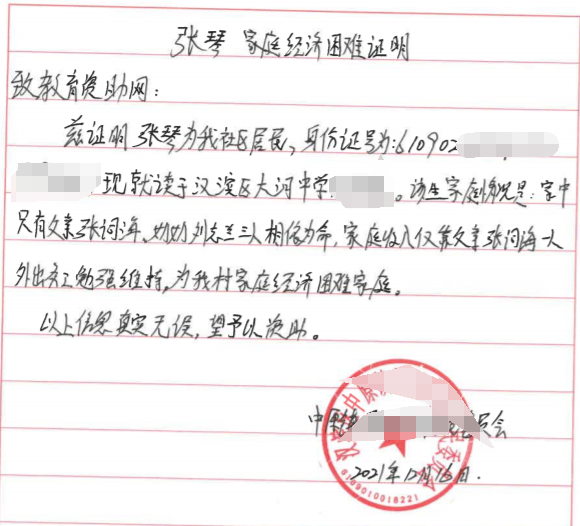 张琴 家庭经济困难证明
致教育资助网：
兹证明 张琴为我社区居民，身份证号为:610902
现就读于汉滨区大河中学 。该生家庭情况是：家中
只有父亲张词海、奶奶刘志兰三人相依为命，家庭收入仅靠父亲张词海一人
外出务工勉强维持，为我村家庭经济困难家庭。
以上信息真实无误，望予以资助。
中原 委员会
2021年12月16日.
6109010018221